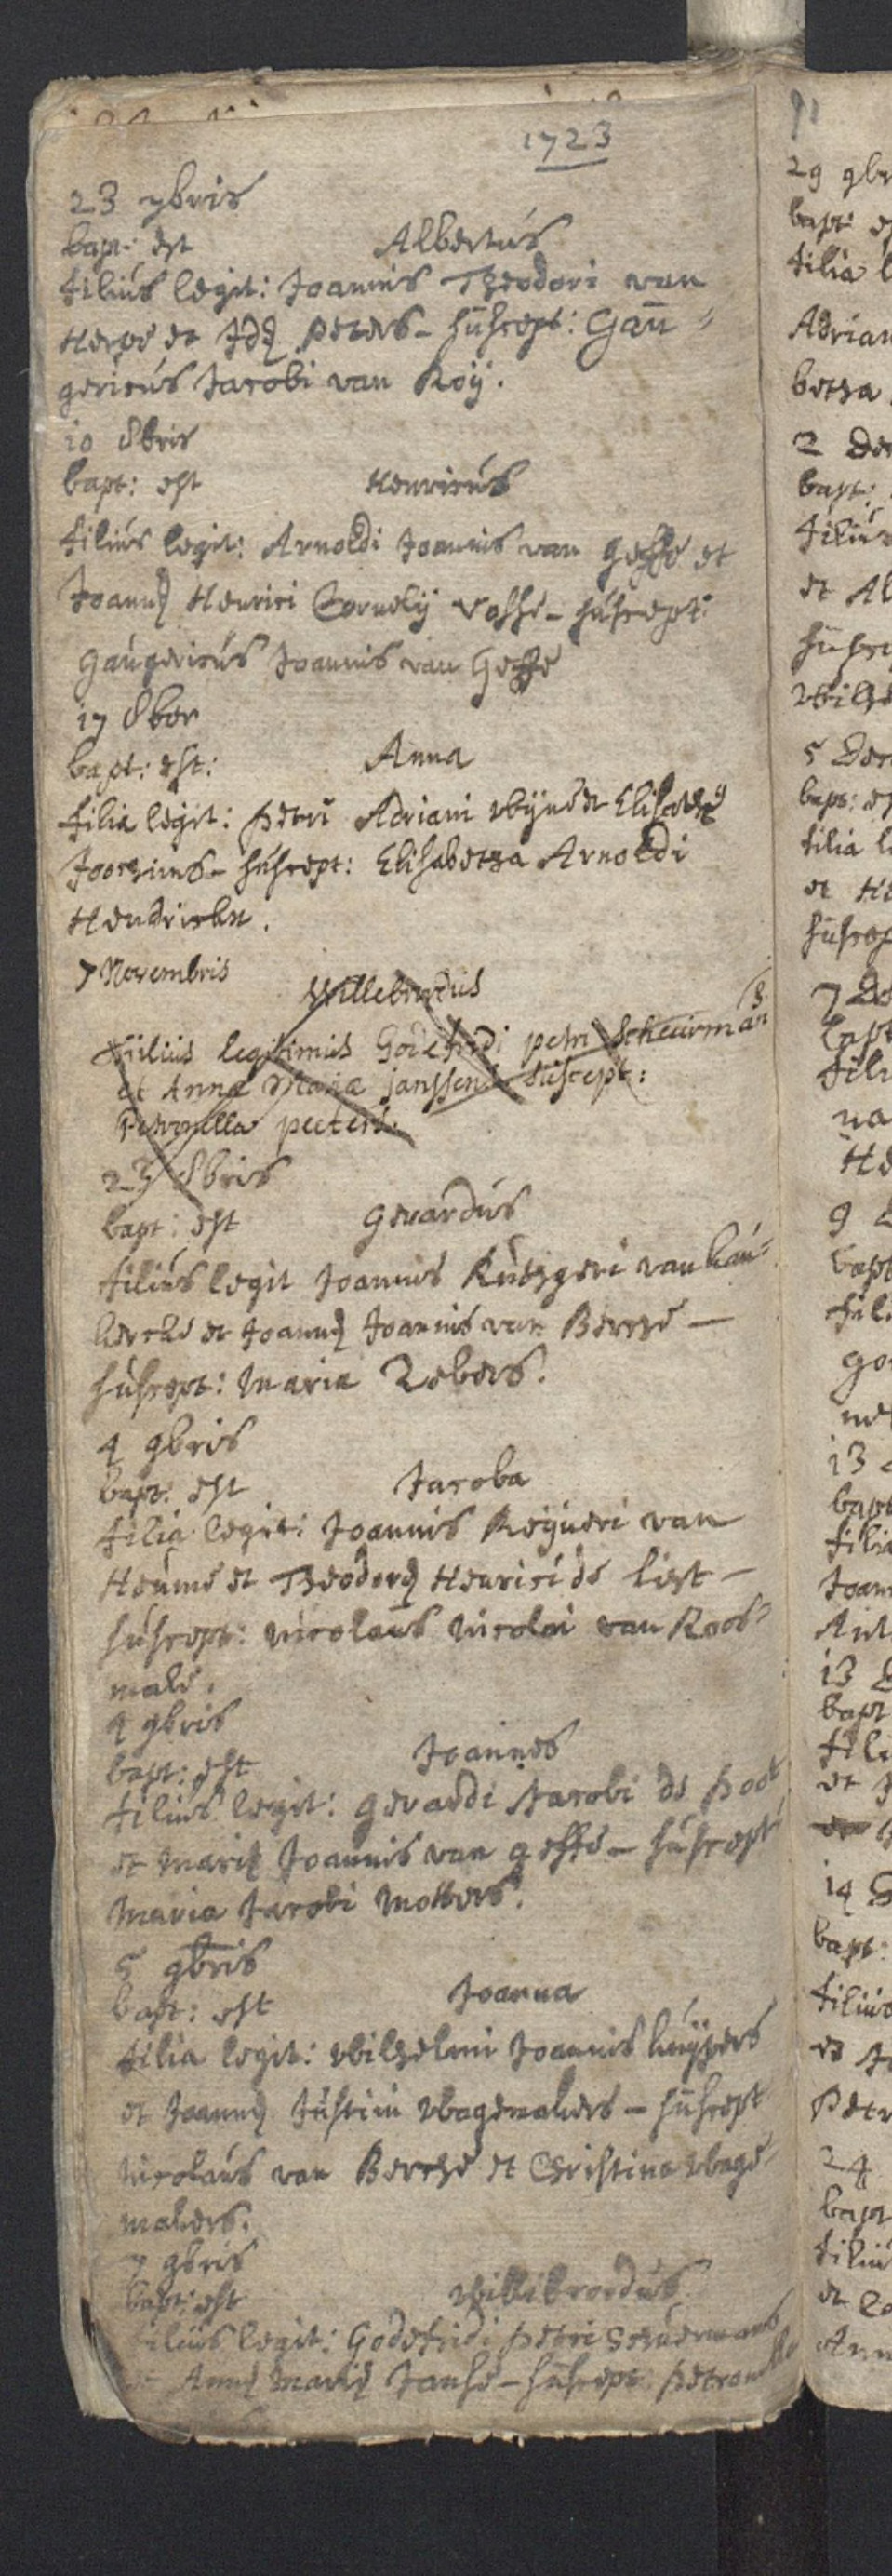 1723
23 7bris
bapt: est Albertus
filius legit: Joannis Theodori van
Herpe et Idæ Peters - suscept: Gau=
gericus Jacobi van Roij.
10 8bris
bapt: est Henricus
filius legit: Arnoldi Joannis van Geffe et
Joannæ Henrici Cornelij Vosse - suscept:
Gaugericus Joannis van Geffe
17 8ber
bapt: est: Anna
filia legit: Petri Adriani Wijne et Elisabethæ
Joordens - suscept: Elisabetha Arnoldi
Hendrickx.
7 Novembris
Willebrordus
filius legitimus Godefridi petri Scheurmans
et Annæ Mariæ janssens suscept:
Petronella peeters.
23 8bris
bapt: est Gerardus
filius legit Joannis Rutgeri van
et Joannæ Joannis van Berghe -
suscept: Maria Zebers.
4 9bris
bapt: est Jacoba
filia legit: Joannis Reijneri van
Heume et Theodoræ Henrici de liest -
suscept: Nicolaus Nicolai van Roos=
male.
4 9bris
bapt: est Joannes
filius legit: Gerardi Jacobi de Poot
et Mariæ Joannis van Geffe - suscept:
Maria Jacobi Mollers.
5 9bris
bapt: est Joanna
filia legit: Wilhelmi Joannis kuijpers
et Joannæ Justini Wagemakers - suscept
Nicolaus van Berghe et Christina Wage=
makers.
7 9bris
bapt: est Willibrordus
filius legit: Godefridi Petri Scheuermans
et Annæ Mariæ Janse - suscept: Petronella
29 9br
bapt: es
filia l
Adrian
betha
2 De
bapt:
filius
et Al
suscep
Wilhe
5 Dec
bapt: es
filia l
et He
suscep
7 De
bapt
fili
na
He
9
bapt
fil
go
ne
13
bapt
filia
Joan
Ant
13
bapt
fili
et J
14
bapt:
filius
et J
Petr
24
bapt
filiu
et Co
Ann